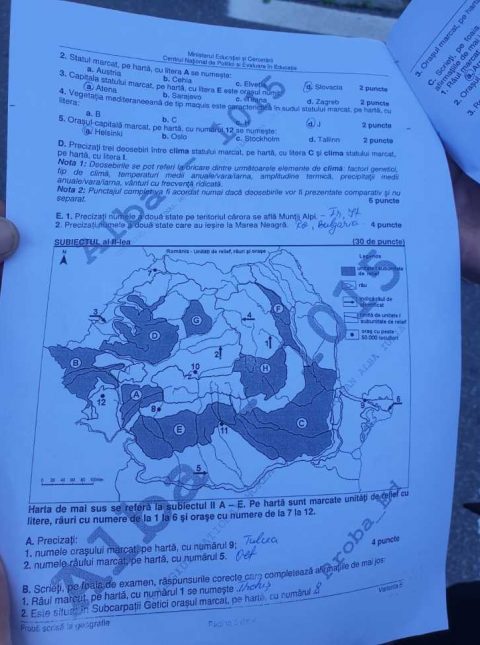 Ministerul Educației și Cercetării
Centrul Național de Politici și Evaluare în Educație
2. Statul marcat, pe hartă, cu litera A se numește:
a. Austria b. Cehia c. Elveția d. Slovacia 2 puncte
3. Capitala statului marcat, pe hartă, cu litera E este orașul numit:
a. Atena b. Sarajevo c. Tirana d. Zagreb 2 puncte
4. Vegetația mediteraneeană de tip maquis este caracteristică în sudul statului marcat, pe hartă, cu
litera:
a. B b. C c. H d. J 2 puncte
5. Orașul-capitală marcat, pe hartă, cu numărul 12 se numește:
a. Helsinki b. Oslo c. Stockholm d. Tallinn 2 puncte
D. Precizați trei deosebiri între clima statului marcat, pe hartă, cu litera C și clima statului marcat,
pe hartă, cu litera I.
Nota 1: Deosebirile se pot referi la oricare dintre următoarele elemente de climă: factori genetici,
tip de climă, temperaturi medii anuale/vara/iarna, amplitudine termică, precipitații medii
anuale/vara/iarna, vânturi cu frecvență ridicată.
Nota 2: Punctajul complet va fi acordat numai dacă deosebirile vor fi prezentate comparativ și nu
separat. 6 puncte
E. 1. Precizați numele a două state pe teritoriul cărora se află Munții Alpi.
2. Precizați numele a două state care au ieșire la Marea Neagră. Ro, Bulgaria 4 puncte
SUBIECTUL al II-lea (30 de puncte)
România - Unități de relief, râuri și orașe
N
Legenda
unitate/subunitate
de relief
râu
indică râul de
identificat
limită de unitate /
subunitate de relief
oraș cu peste
50.000 locuitori
7
3
D
G
4
F
B
2
1
10
H
12
A
8
E
11
C
9
6
5
0 20 40 60 80 100km
Harta de mai sus se referă la subiectul II A – E. Pe hartă sunt marcate unități de relief cu
litere, râuri cu numere de la 1 la 6 și orașe cu numere de la 7 la 12.
A. Precizați:
1. numele orașului marcat, pe hartă, cu numărul 9; Tulcea
2. numele râului marcat, pe hartă, cu numărul 5. Olt 4 puncte
B. Scrieți, pe foaia de examen, răspunsurile corecte care completează afirmațiile de mai jos:
1. Râul marcat, pe hartă, cu numărul 1 se numește
2. Este situat în Subcarpații Getici orașul marcat, pe hartă, cu numărul 8
Probă scrisă la geografie
Varianta 5